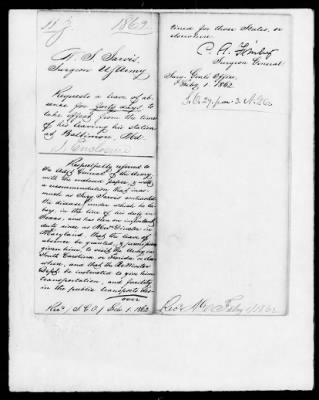 1862
N. S. Jarvis.
Surgeon US Army
Requests a leave of ab-
sence for forty days, to
take effect from the time
of his leaving his station
at Baltimore, Md.
1. Enclosure
Respectfully referred to
the Adjt General of the Army
with the enclosed paper, & with
a recommendation that inas-
much as Surg. Jarvis contracted
the disease, under which he la-
bors, in the line of his duty in
Texas, and has been on important
duty since as Medl Director in
Maryland, that the leave of
absence be granted, & permission
given him, to visit the Army in
South Carolina or Florida or else-
where, and that the Qr Master
Dept. be instructed to give him
transportation, and facility
in the public transports des-
over
Recd. S.G.O. Feb. 1. 1862
tined for those States, or
elsewhere.
C. A. Finley
Surgeon General
Surg. Genls Office,
Feby 1 1862
S.O. 29. par. 3.
Recd Feby 1 1862